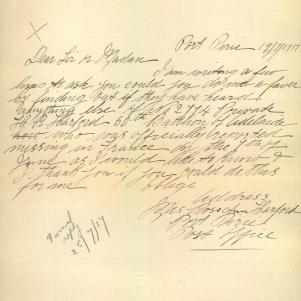 Port Pirie 12/7/1917
Dear Sir or Madam
I am writing a few
lines to ask you could you do me a favor
by finding out if they have heard
anything else of No 2474 Private
Harford 50th Battalion of Adelaide
who was officially reported
missing in France on the of
June as I would like to know &
I thank you if you could do this
for me oblige
Address
Mrs Harford
Port Pirie
Post Office
25/7/17